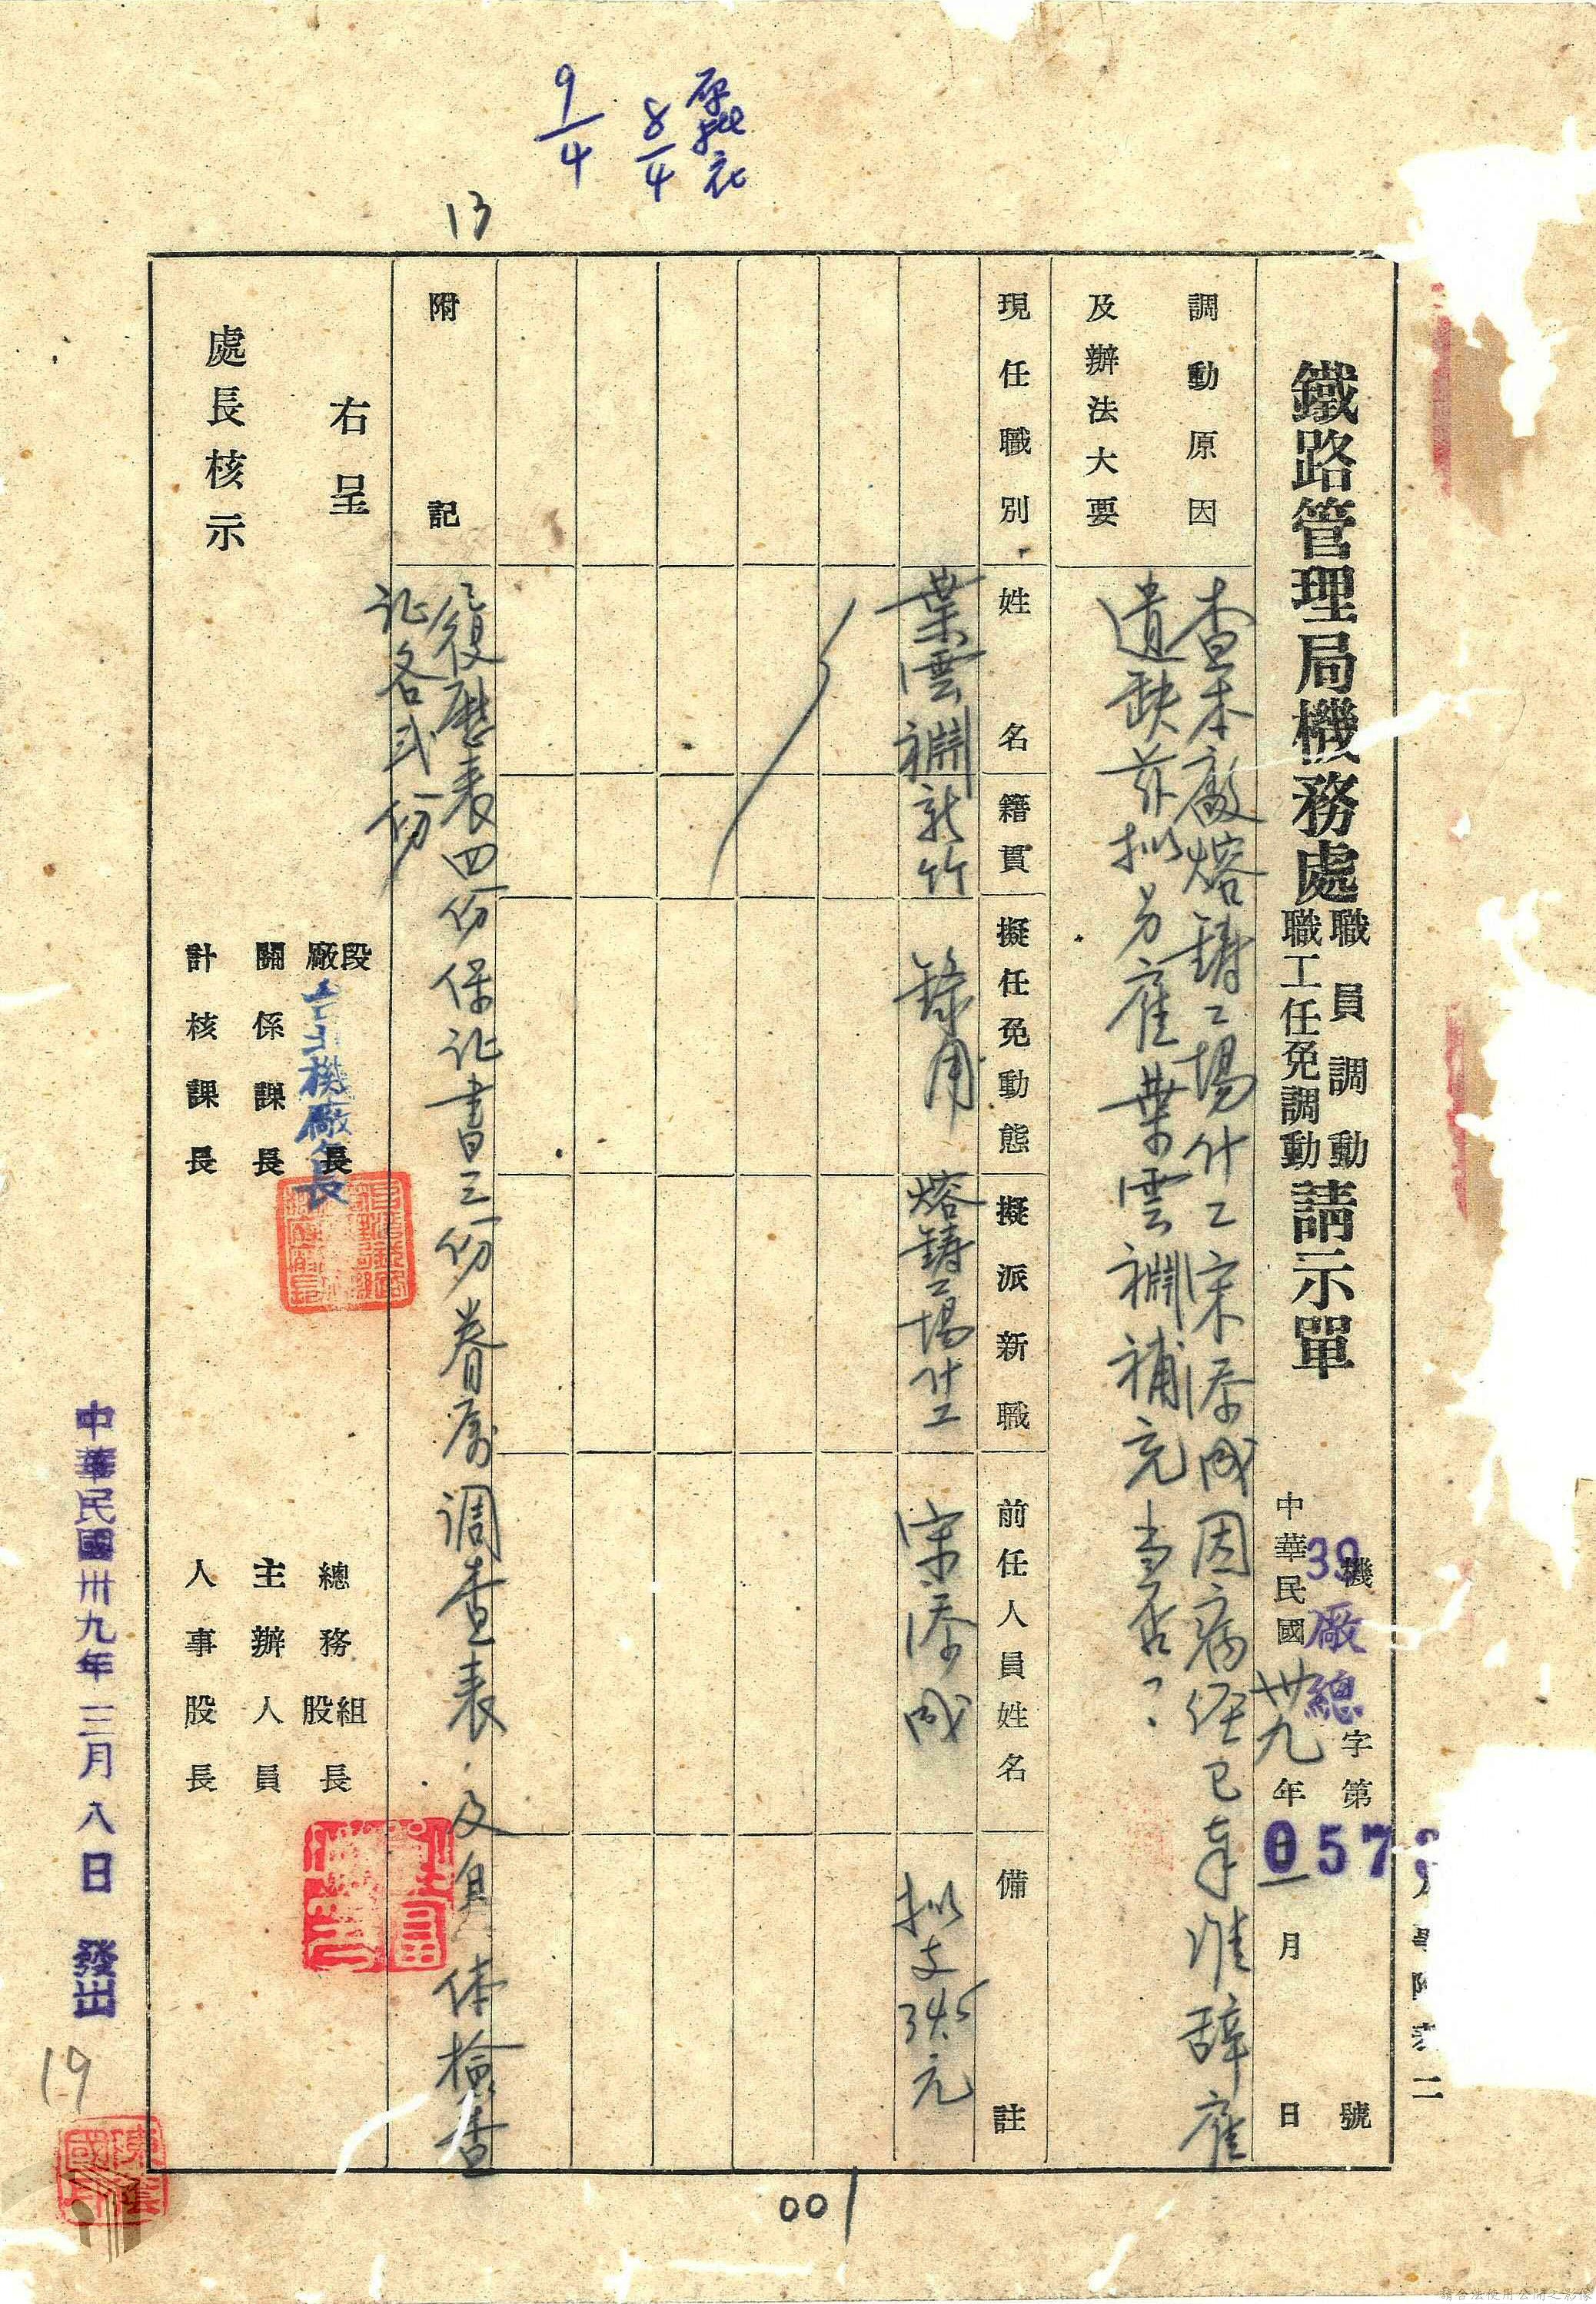 鐵路管理局機務處
職員調動
職工任免調動
請示單
機 字第 號
39廠總
057
中華民國卅九年 一 月 日
調動原因
及辦法大要
查本廠熔鑄工場什工宋添成因病經已奉准辞雇
遺缺茲拟另雇葉雲褵補充當否?
現任職別
姓名
籍貫
擬任免動態
擬派新職
前任人員姓名
備註
葉雲
新竹
錄用
熔鑄工場什工
宋添成
拟支34.5元
附記
復歷表四份保证書三份眷屬調查表.及身体檢查
证各弍份
右呈
處長核示
段
廠長
台北機廠長
關係課長
計核課長
總務組
股長
主辦人員
人事股長
中華民國卅九年三月八日發出
9/4
8/4
13
19
001
請合法使用公開之影像